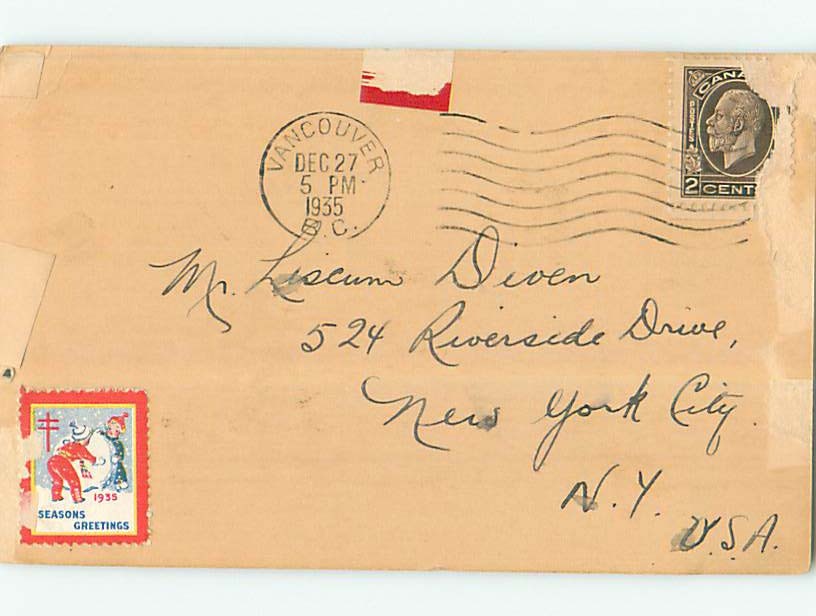 VANCOUVER
DEC 27
5 PM
1935
B.C.
CANA
POSTES
2 CENT
Mr. Liscum Diven
524 Riverside Drive,
New York City.
N.Y.
U.S.A.
1935
SEASONS
GREETINGS